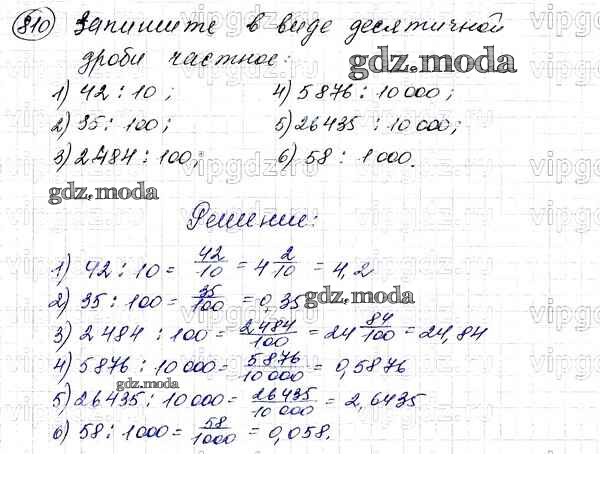 810 Запишите в виде десятичной
дроби частное:
gdz.moda
1) 42 : 10 ; 4) 5876 : 10 000;
2) 35 : 100; 5) 26435 : 10 000;
3) 2484 : 100; 6) 58 : 1000.
gdz.moda
Решение:
1) 42 : 10 = 42/10 = 4 2/10 = 4,2
2) 35 : 100 = 35/100 = 0,35
gdz.moda
3) 2484 : 100 = 2484/100 = 24 84/100 = 24,84
4) 5876 : 10 000 = 5876/10 000 = 0,5876
gdz.moda
5) 26435 : 10 000 = 26435/10 000 = 2,6435
6) 58 : 1000 = 58/1000 = 0,058.